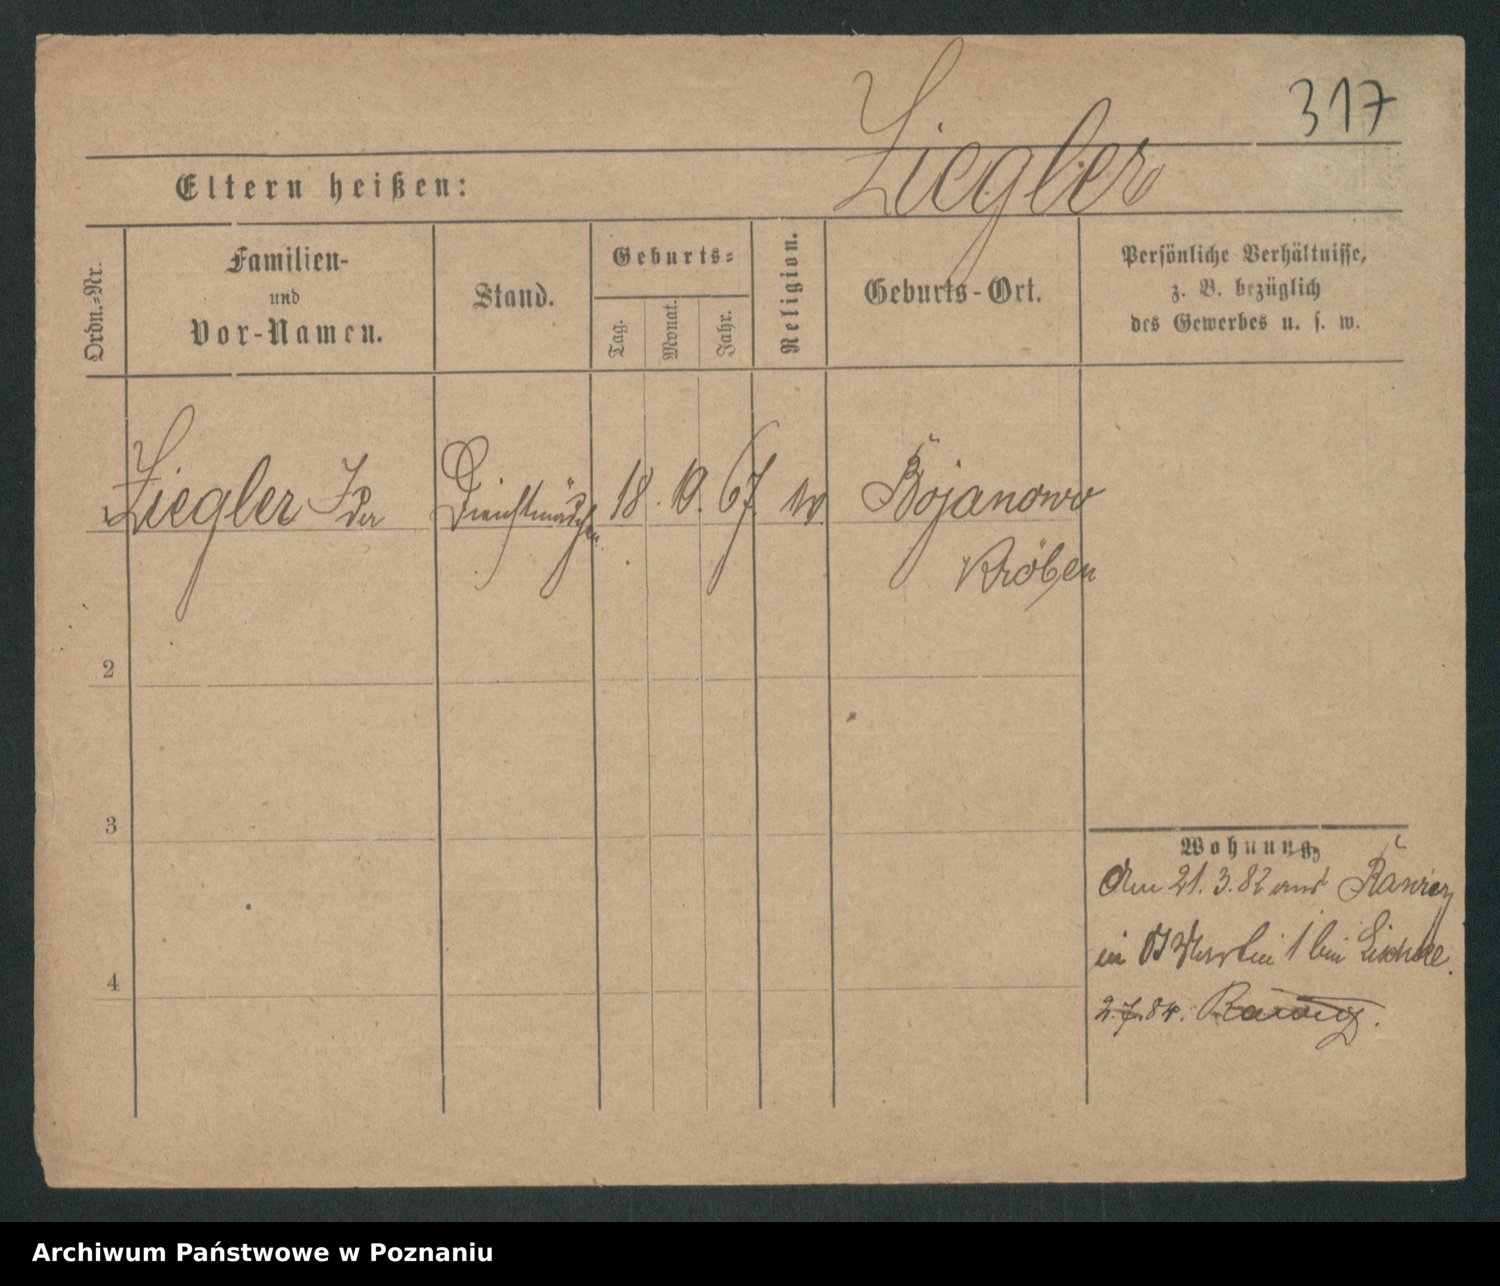 317
Ziegler
Eltern heißen:
Ordn.-Nr.
Familien-
und
Vor-Namen.
Stand.
Geburts-
Tag.
Monat.
Jahr.
Religion.
Geburts-Ort.
Persönliche Verhältnisse,
z. B. bezüglich
des Gewerbes u. s. w.
Ziegler Ida
Dienstmädchen
18. 10. 67.
Bojanowo
Kröben
2
3
4
Wohnung
Am 21. 3. 82 aus Rawicz
in
2.7.84. Rawicz.
Archiwum Państwowe w Poznaniu